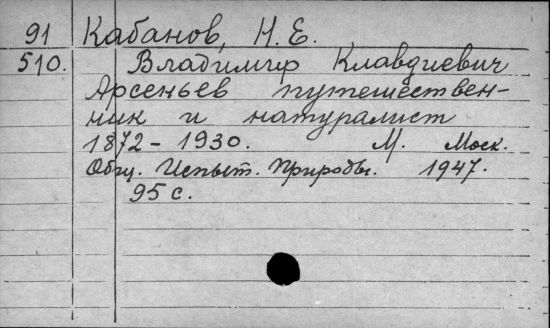 91 Кабанов, Н. Е.
510. Владимир Клавдиевич
Арсеньев путешествен-
ник и натуралист
1872 - 1930. М. Моск.
Общ. Испыт. Природы. 1947.
95 с.